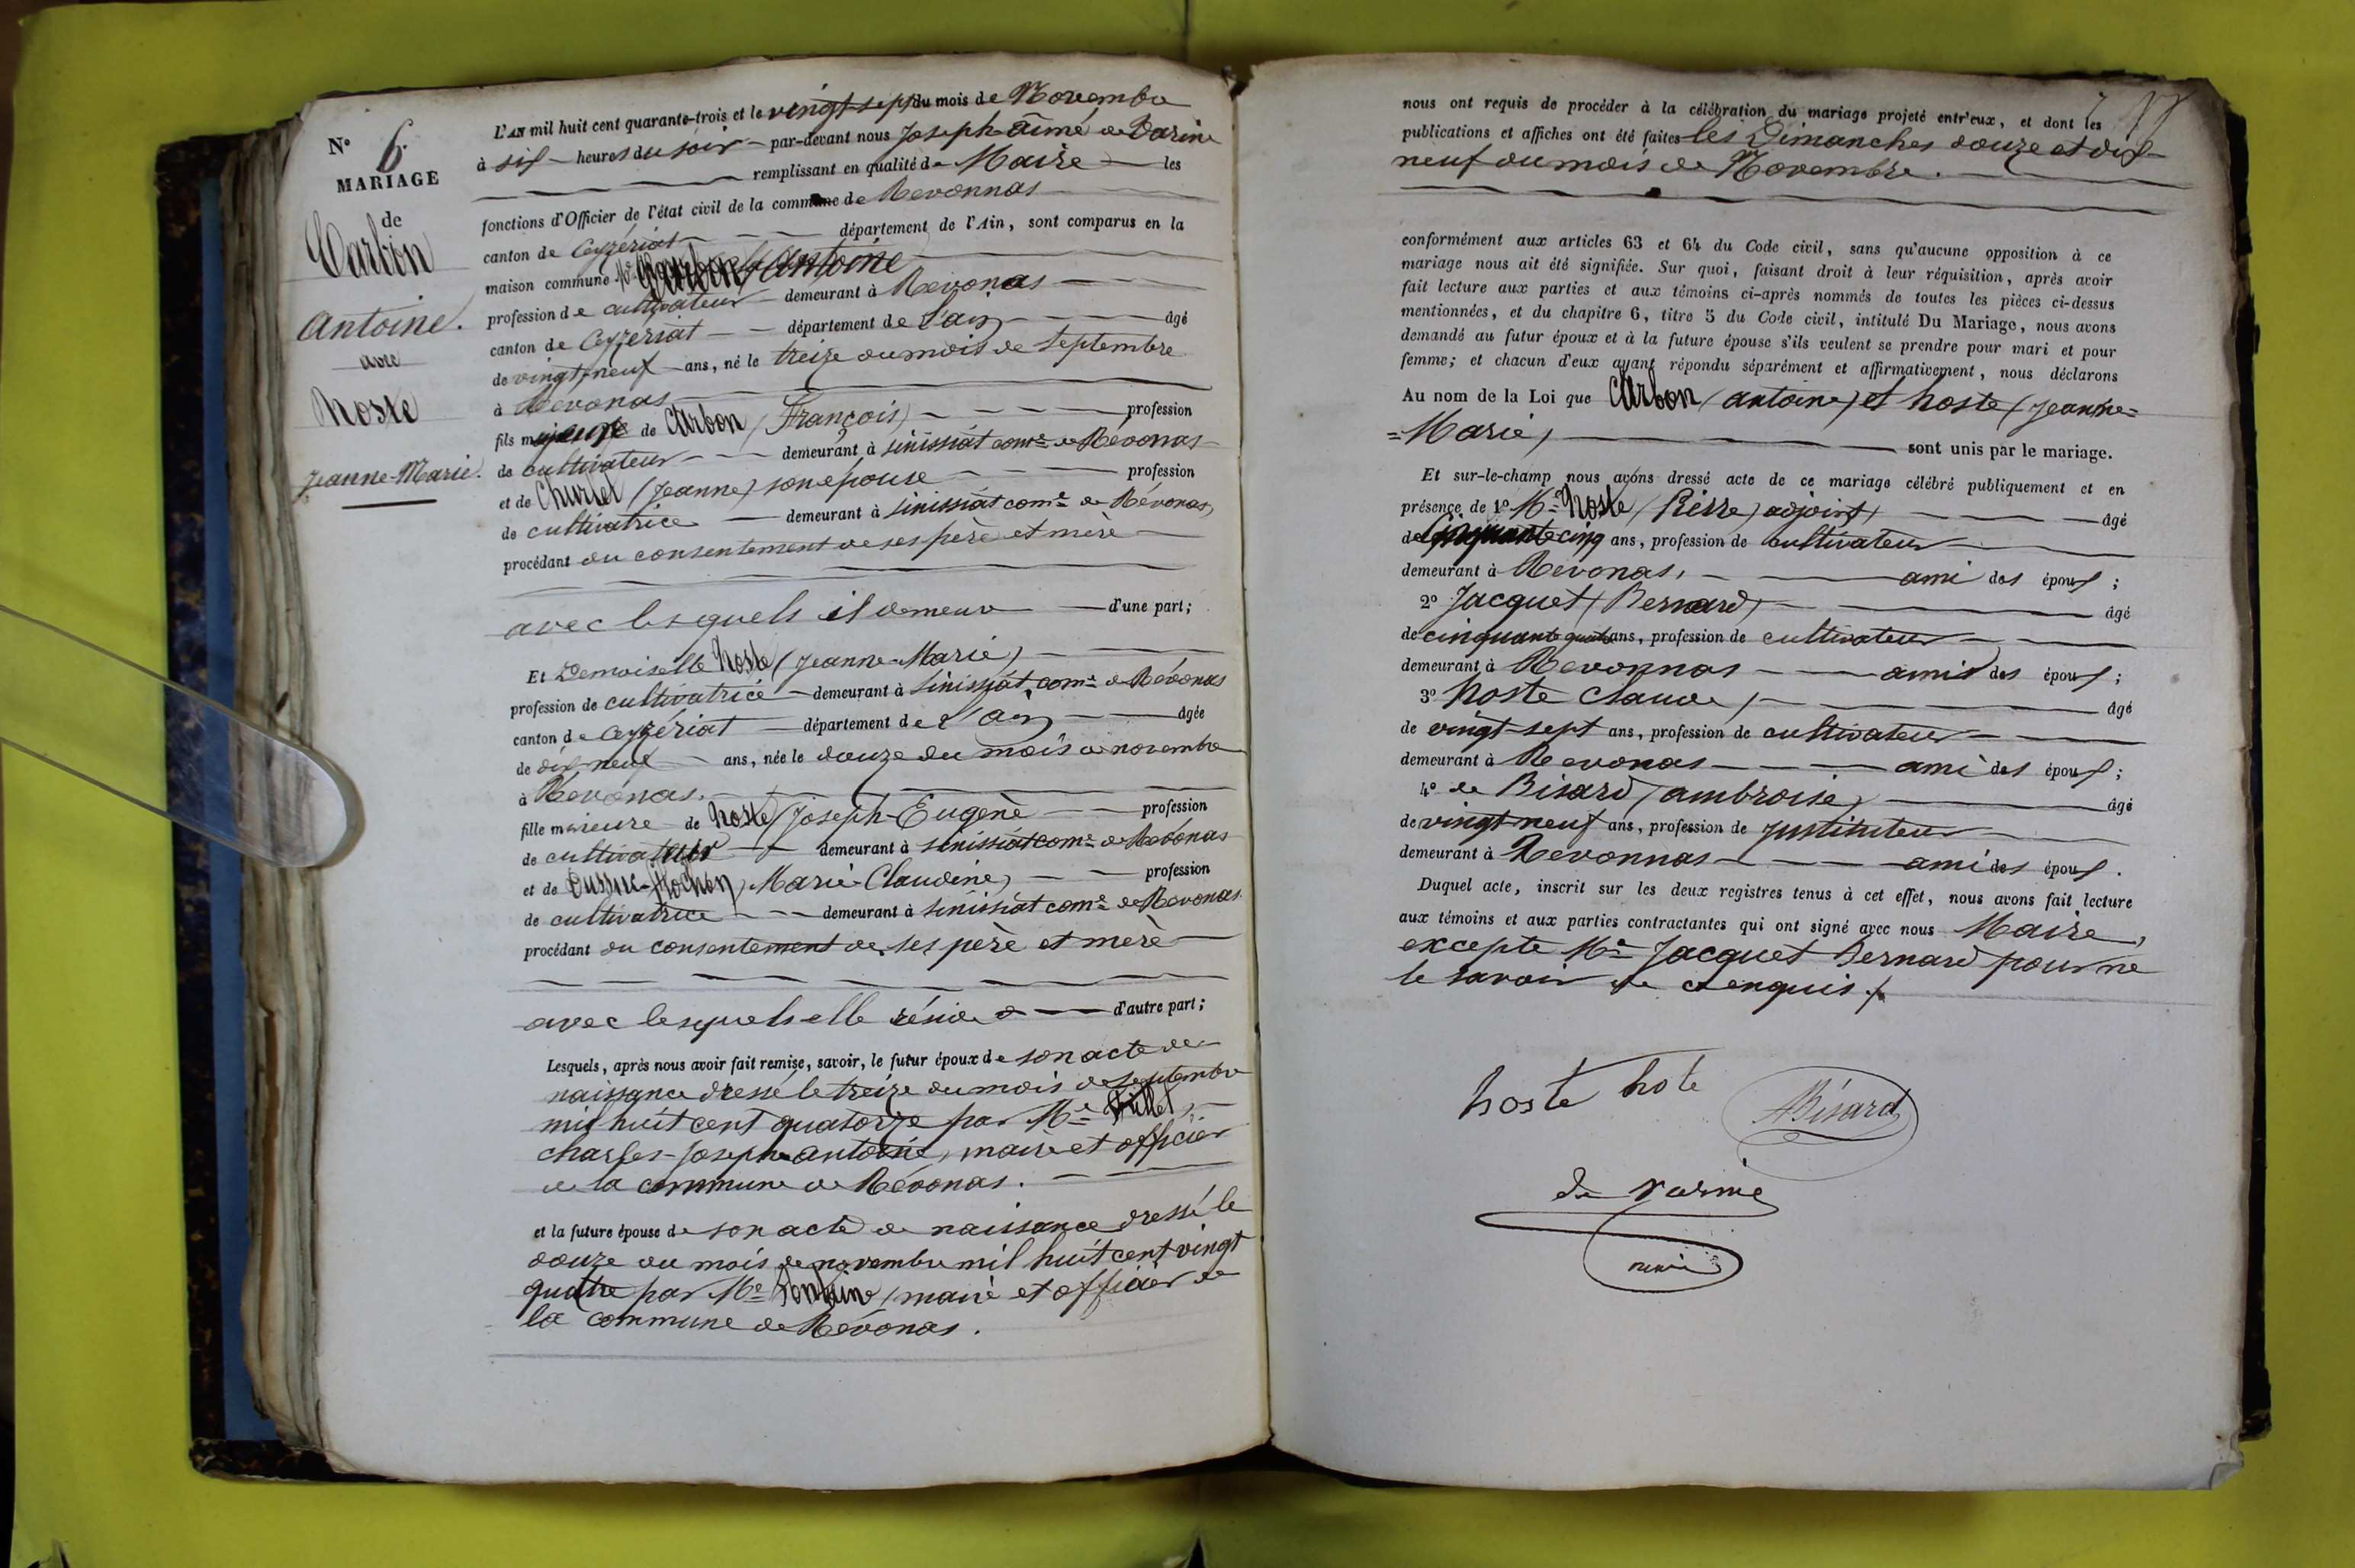 N° 6.
MARIAGE
de
Carbon
Antoine.
avec
hoste
Jeanne-Marie.
L'AN mil huit cent quarante-trois et le vingt-sept du mois de Novembre
à six heures du soir par-devant nous Joseph-aimé de Varine
remplissant en qualité de Maire les
fonctions d'Officier de l'état civil de la commune de Revonnas
canton de Ceyzériat département de l'Ain, sont comparus en la
maison commune Mr Carbon (Antoine)
profession de cultivateur demeurant à Revonas
canton de Ceyzériat département de l'ain âgé
de vingt-neuf ans, né le treize du mois de Septembre
à Revonas
fils majeur de Carbon (François) profession
de cultivateur demeurant à sinissiat come de Révonas
et de Churlet (Jeanne) son épouse profession
de cultivatrice demeurant à sinissiat come de Révonas
procédant du consentement de ses père et mère
avec lesquels il demeure d'une part;
Et Demoiselle hoste (Jeanne-Marie)
profession de cultivatrice demeurant à sinissiat, come de Révonas
canton de Ceyzériat département de l'ain âgée
de dix-neuf ans, née le douze du mois de novembre
à Révonas.
fille mineure de hoste (Joseph-Eugène profession
de cultivateur demeurant à sinissiat come de Révonas
et de Marie-Claudine) profession
de cultivatrice demeurant à sinissiat come de Révonas.
procédant du consentement de ses père et mère
avec lesquels elle réside d'autre part;
Lesquels, après nous avoir fait remise, savoir, le futur époux de son acte de
naissance dressé le treize du mois de septembre
mil huit cent quatorze par Mr
charles-Joseph-antoine, maire et officier
de la commune de Révonas.
et la future épouse de son acte de naissance dressé le
douze du mois de novembre mil huit cent vingt
quatre par Mr maire et officier de
la commune de Révonas.
nous ont requis de procéder à la célébration du mariage projeté entr'eux, et dont les
publications et affiches ont été faites les Dimanches douze et dix-
neuf du mois de Novembre.
conformément aux articles 63 et 64 du Code civil, sans qu'aucune opposition à ce
mariage nous ait été signifiée. Sur quoi, faisant droit à leur réquisition, après avoir
fait lecture aux parties et aux témoins ci-après nommés de toutes les pièces ci-dessus
mentionnées, et du chapitre 6, titre 5 du Code civil, intitulé Du Mariage, nous avons
demandé au futur époux et à la future épouse s'ils veulent se prendre pour mari et pour
femme; et chacun d'eux ayant répondu séparément et affirmativement, nous déclarons
Au nom de la Loi que Carbon (antoine) et hoste (Jeanne=
=Marie) sont unis par le mariage.
Et sur-le-champ nous avons dressé acte de ce mariage célébré publiquement et en
présence de 1° Mr hoste (Pierre) adjoint, âgé
de cinquante-cinq ans, profession de cultivateur
demeurant à Révonas, ami des époux;
2° Jacquet (Bernard) âgé
de cinquante quatre ans, profession de cultivateur
demeurant à Revonnas amis des époux;
3° hoste Claude) âgé
de vingt-sept ans, profession de cultivateur
demeurant à Revonas ami des époux;
4° de Bisard (ambroise) âgé
de vingt-neuf ans, profession de Instituteur
demeurant à Revonnas ami des époux.
Duquel acte, inscrit sur les deux registres tenus à cet effet, nous avons fait lecture
aux témoins et aux parties contractantes qui ont signé avec nous Maire,
excepté Mr Jacquet Bernard pour ne
le savoir de ce enquis.
hoste hote
ABisard
de varine
maire